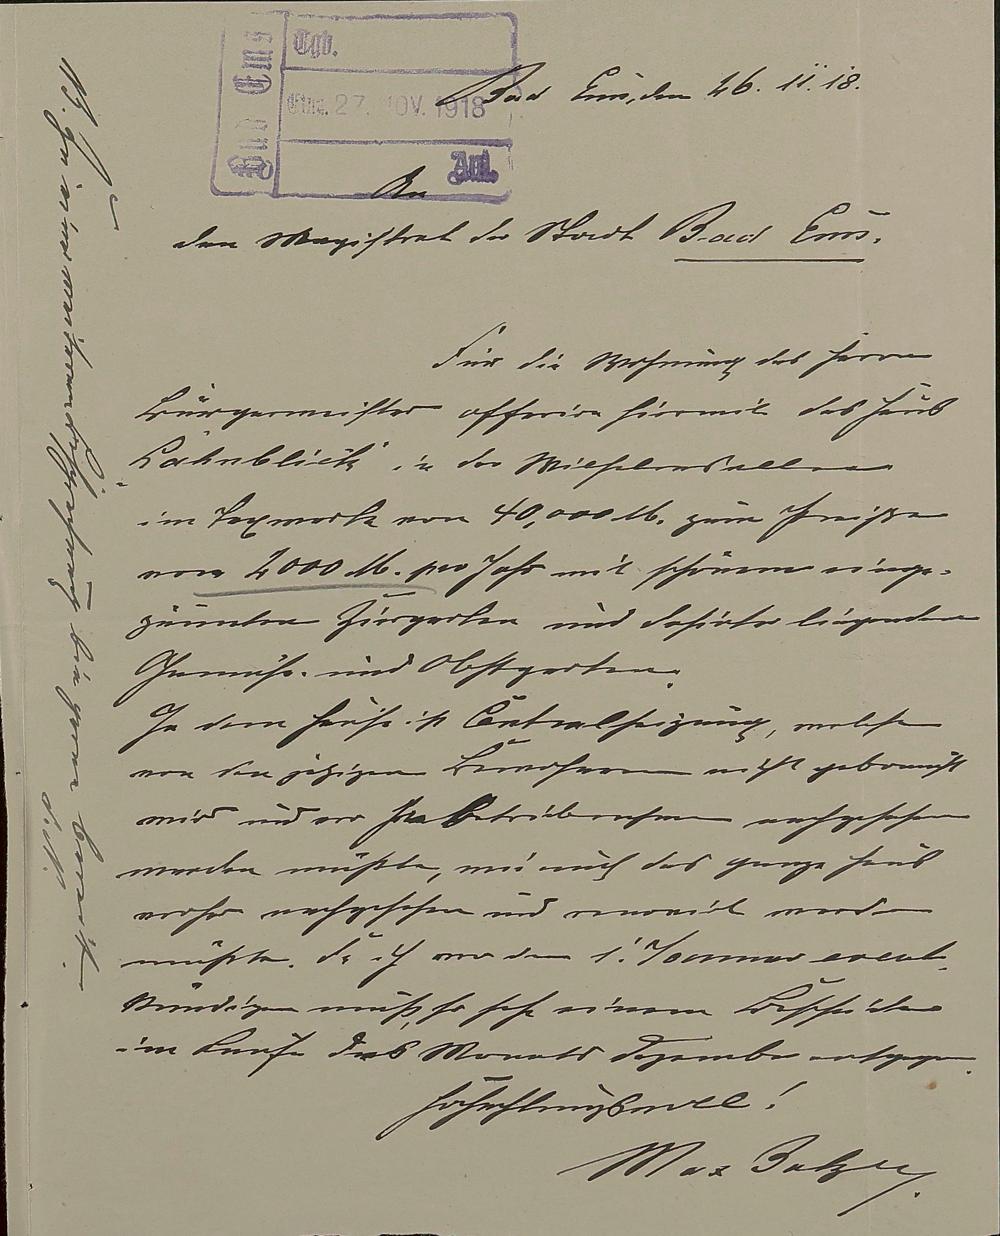 Bad Ems
Tgb.
Eing. 27. NOV. 1918
Anl.
Bad Ems, den 26. 11. 18.
An
den Magistrat der Stadt Bad Ems.
Für die Wohnung des Herrn
Bürgermeister offerire hiermit das Haus
„Lahnblick“ in der Wilhelmsallee
im Taxwerte von 40,000 M. zum Preise
von 2000 M. pro Jahr mit schönem einge-
zäunten Ziergarten und dahinter liegenden
Gemüse- und Obstgarten.
In dem Hause ist Centralheizung, welche
von den jetzigen Bewohnern nicht gebraucht
wird und vor Inbetriebnahme nachgesehen
werden müßte, wie auch das ganze Haus
vorher nachgesehen und renovirt werden
müßte. Da ich vor dem 1. Januar event.
kündigen muß, so sehe einem Bescheide
im Laufe des Monats Dezember entgegen.
Hochachtungsvoll!
Max Balzer.
Zu einer mündlichen Besprechung bin gerne bereit.
d. O.